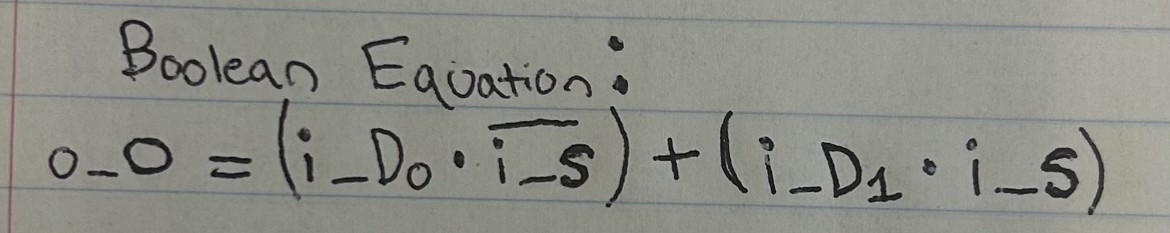 Boolean Equation:
o_O = (i_D₀ · i̅_̅s̅) + (i_D₁ · i_s)